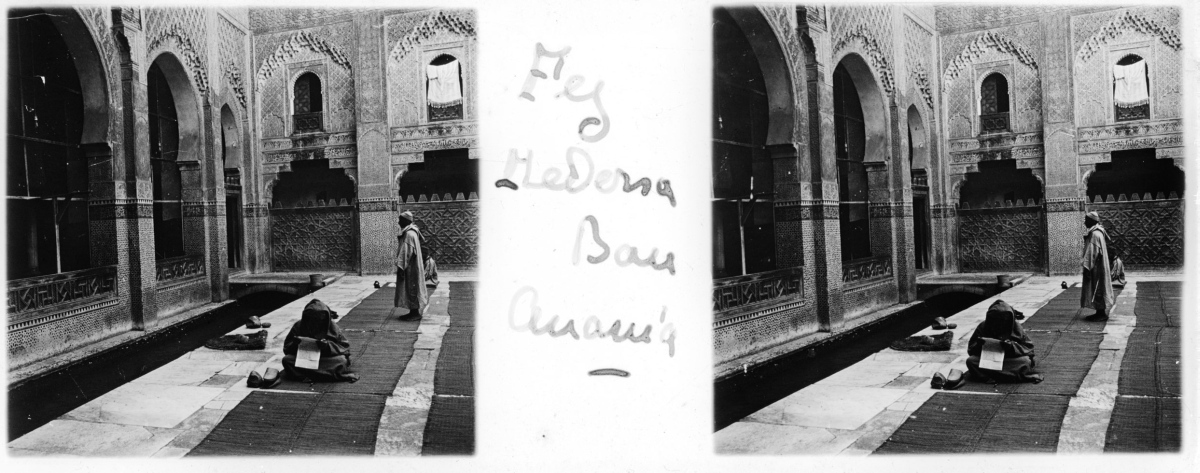 Fes
Medersa
Bou
Anania